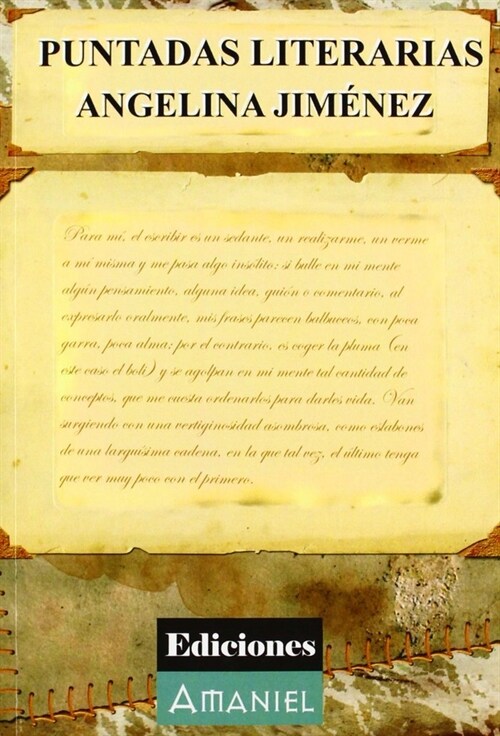 PUNTADAS LITERARIAS
ANGELINA JIMÉNEZ
Para mí, el escribir es un sedante, un realizarme, un verme
a mí misma y me pasa algo insólito; si bulle en mi mente
algún pensamiento, alguna idea, guión o comentario, al
expresarlo oralmente, mis frases parecen balbuceos, con poca
garra, poca alma; por el contrario, es coger la pluma (en
este caso el boli) y se agolpan en mi mente tal cantidad de
conceptos, que me cuesta ordenarlos para darles vida. Van
surgiendo con una vertiginosidad asombrosa, como eslabones
de una larguísima cadena, en la que tal vez, el último tenga
que ver muy poco con el primero.
Ediciones
AMANIEL